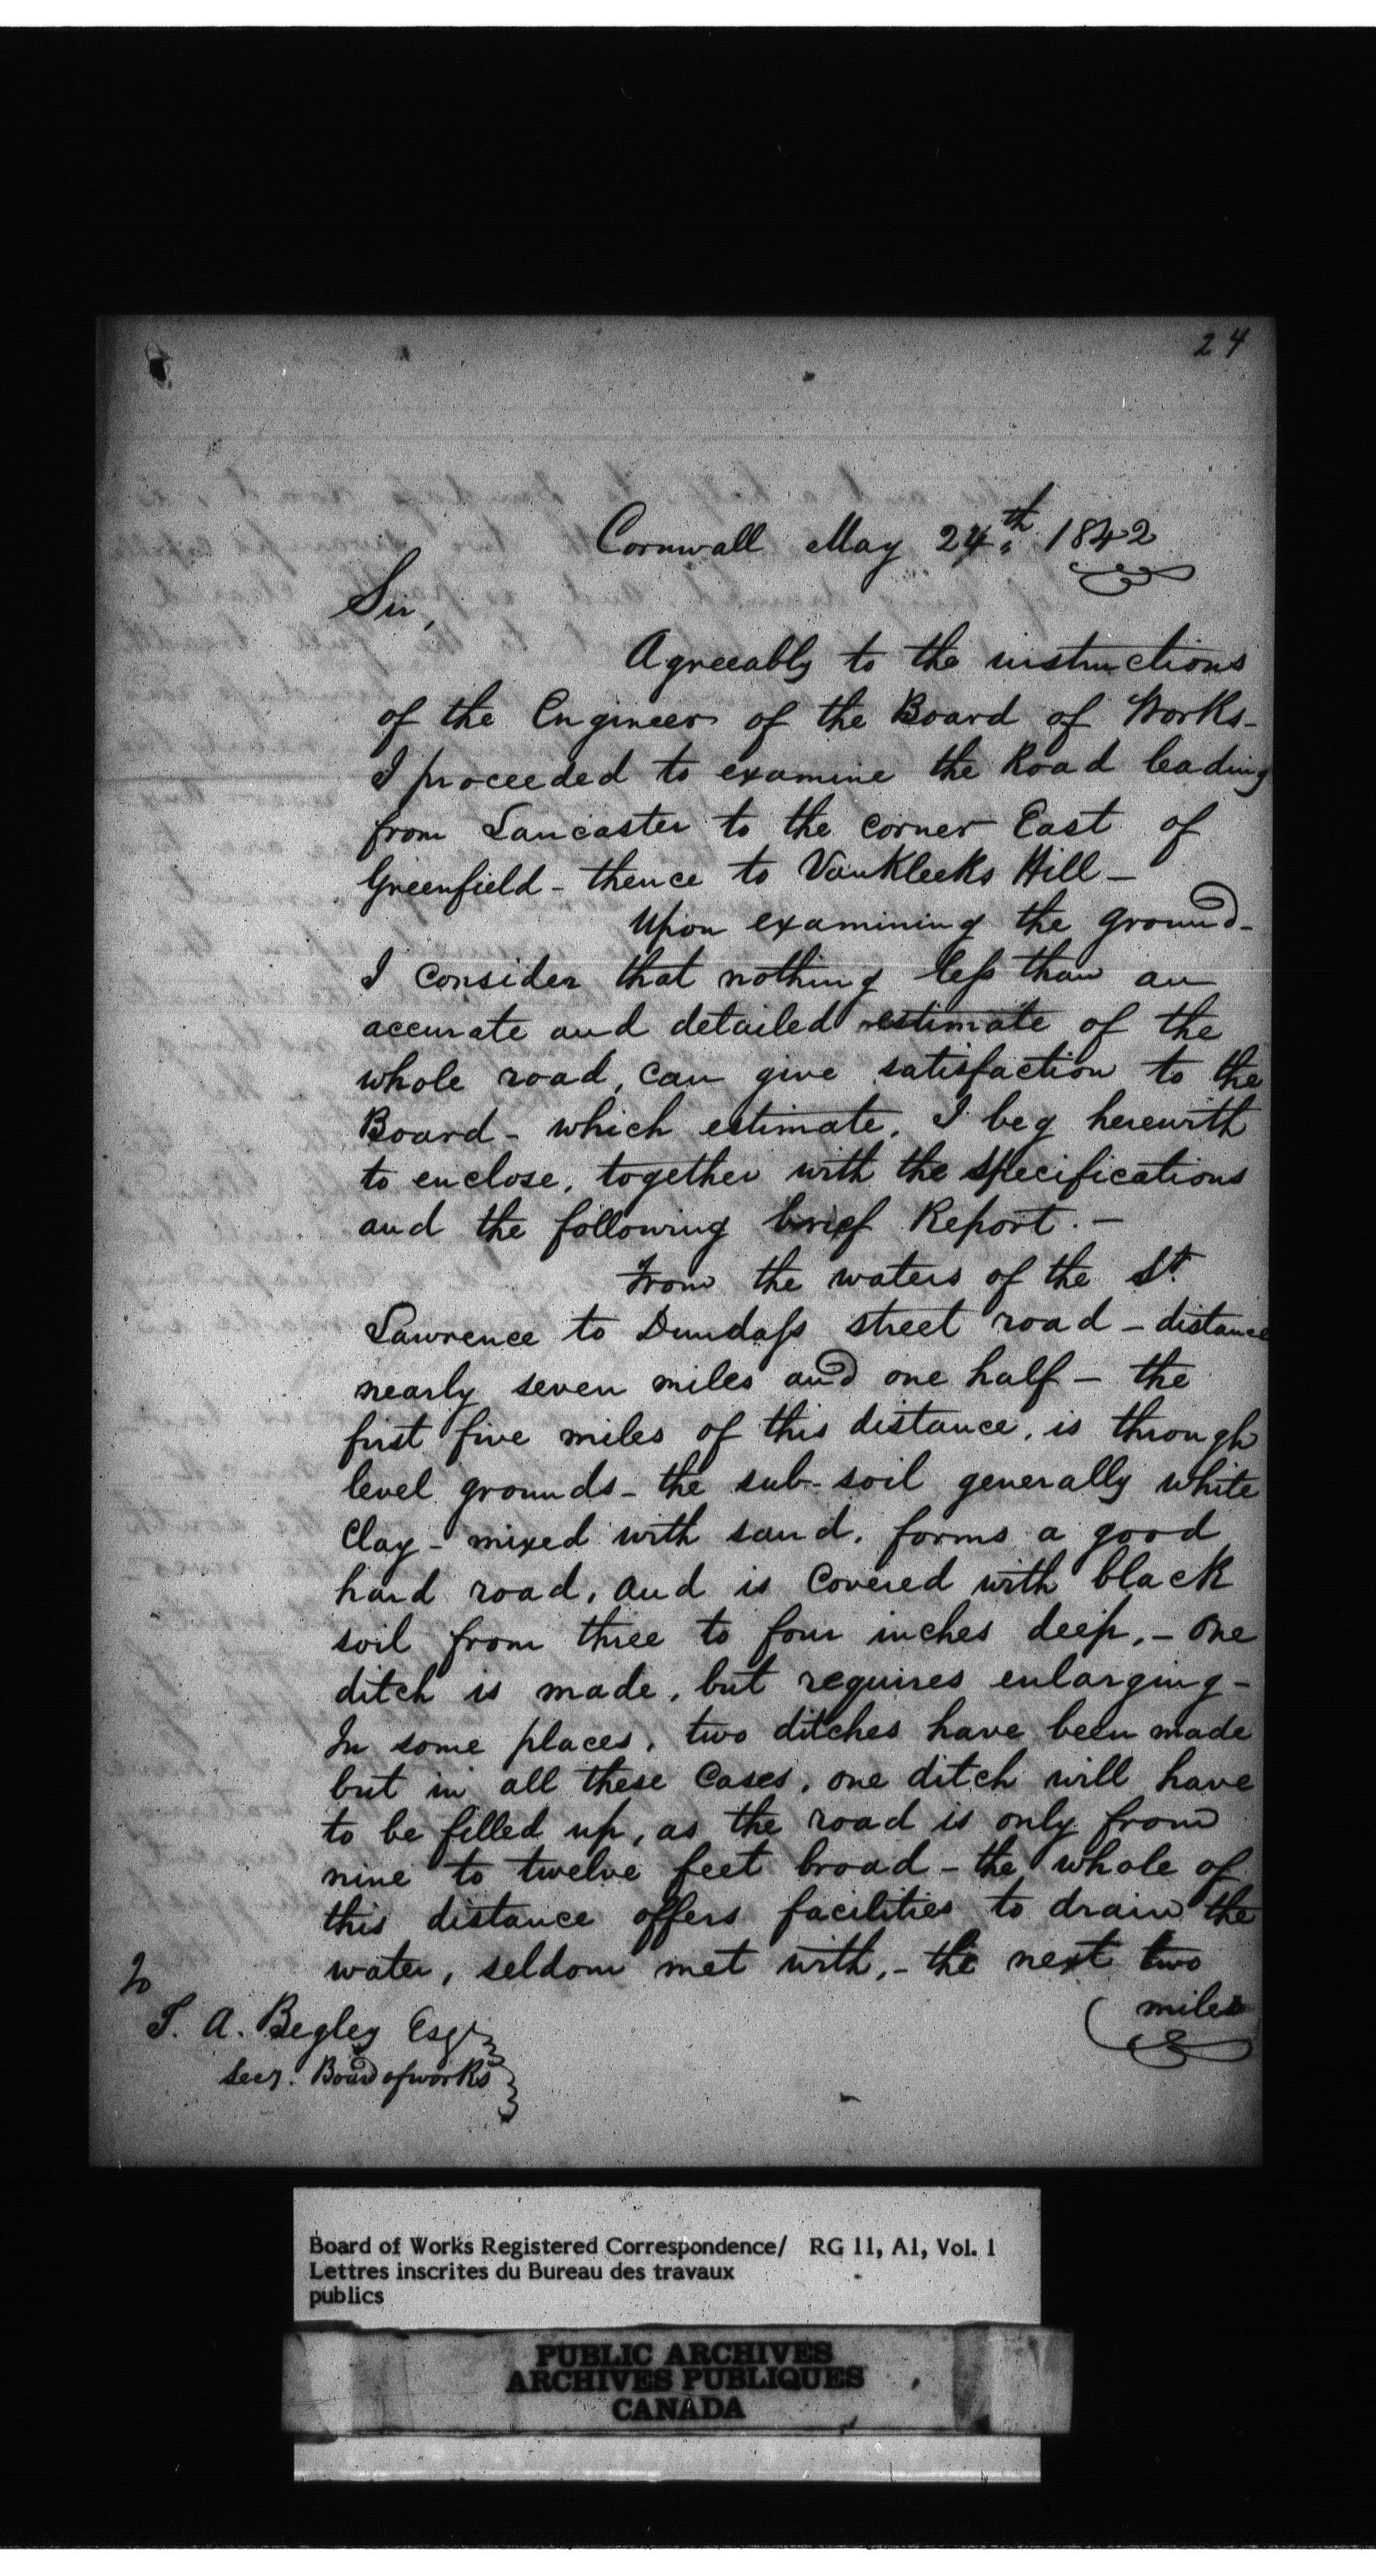 24
Cornwall May 24th. 1842
Sir,
Agreeably to the instructions
of the Engineer of the Board of Works -
I proceeded to examine the Road leading
from Lancaster to the corner East of
Greenfield - thence to VanKleeks Hill -
Upon examining the ground -
I consider that nothing less than an
accurate and detailed estimate of the
whole road, can give satisfaction to the
Board - which estimate, I beg herewith
to enclose, together with the specifications
and the following brief Report. -
From the waters of the St.
Lawrence to Dundass street road - distance
nearly seven miles and one half - the
first five miles of this distance, is through
level grounds - the sub-soil generally white
Clay - mixed with sand, forms a good
hard road, and is Covered with black
soil from three to four inches deep, - One
ditch is made, but requires enlarging -
In some places, two ditches have been made
but in all these Cases, one ditch will have
to be filled up, as the road is only from
nine to twelve feet broad - the whole of
this distance offers facilities to drain the
water, seldom met with, - the next two
miles
To
T. A. Begley Esqr
Secy. Board of works
Board of Works Registered Correspondence/ RG 11, A1, Vol. 1
Lettres inscrites du Bureau des travaux
publics
PUBLIC ARCHIVES
ARCHIVES PUBLIQUES
CANADA